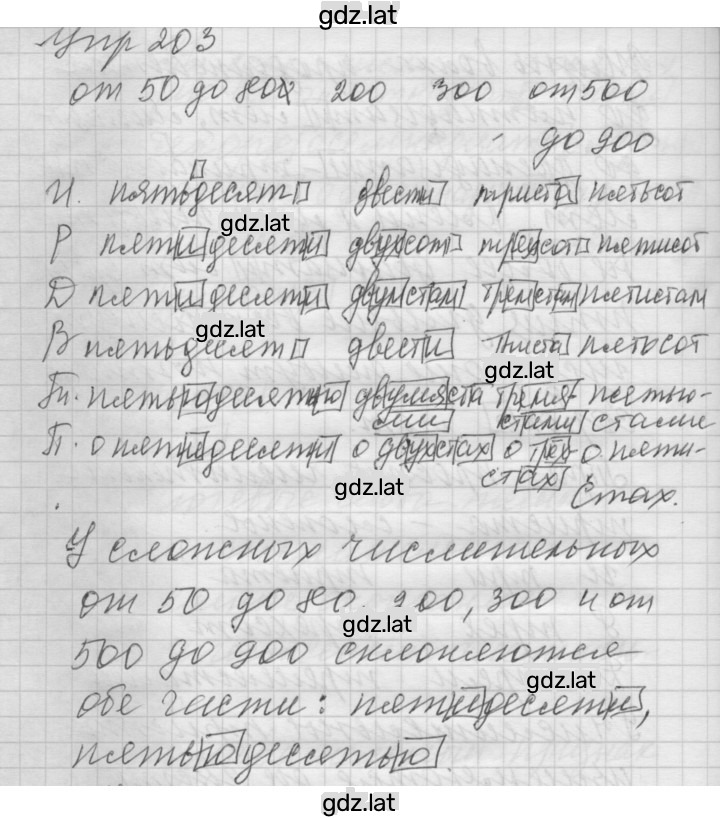 gdz.lat
Упр 203
от 50 до 80 200 300 от 500
до 900
И. пятьдесят двести триста пятьсот
gdz.lat
Р пятидесяти двухсот трехсот пятисот
Д пятидесяти двумстам тремстам пятистам
gdz.lat
В пятьдесят двести тиста пятьсот
gdz.lat
Тп. пятьюдесятью двумяста тремя- пятью-
ми стами стами
П. о пятидесяти о двухстах о трех- о пяти-
gdz.lat
стах стах.
У сложных числительных
от 50 до 80. 200, 300 и от
gdz.lat
500 до 900 склоняются
gdz.lat
обе части: пятидесяти,
пятьюдесятью.
gdz.lat